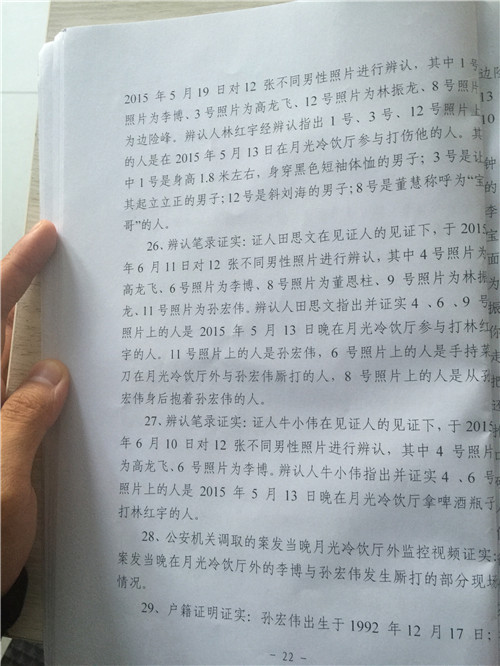 2015 年 5 月 19 日对 12 张不同男性照片进行辨认，其中 1 号
照片为李博、3 号照片为高龙飞、12 号照片为林振龙、8 号照片
为边险峰。辨认人林红宇经辨认指出 1 号、3 号、12 号照片上
的人是在 2015 年 5 月 13 日在月光冷饮厅参与打伤他的人。其
中 1 号是身高 1.8 米左右，身穿黑色短袖体恤的男子；3 号是让
其起立立正的男子；12 号是斜刘海的男子；8 号是董慧称呼为“宝
哥”的人。
26、辨认笔录证实：证人田思文在见证人的见证下，于 2015
年 6 月 11 日对 12 张不同男性照片进行辨认，其中 4 号照片为
高龙飞、6 号照片为李博、8 号照片为董恩柱、9 号照片为林振
龙、11 号照片为孙宏伟。辨认人田思文指出并证实 4 、6 、9 号
照片上的人是 2015 年 5 月 13 日晚在月光冷饮厅参与打林红
宇的人。11 号照片上的人是孙宏伟，6 号照片上的人是手持菜
刀在月光冷饮厅外与孙宏伟厮打的人，8 号照片上的人是从孙
宏伟身后抱着孙宏伟的人。
27、辨认笔录证实：证人牛小伟在见证人的见证下，于 2015
年 6 月 10 日对 12 张不同男性照片进行辨认，其中 4 号照片
为高龙飞、6 号照片为李博。辨认人牛小伟指出并证实 4 、6 号
照片上的人是 2015 年 5 月 13 日晚在月光冷饮厅拿啤酒瓶子
打林红宇的人。
28、公安机关调取的案发当晚月光冷饮厅外监控视频证实：
案发当晚在月光冷饮厅外的李博与孙宏伟发生厮打的部分现场
情况。
29、户籍证明证实：孙宏伟出生于 1992 年 12 月 17 日；
- 22 -